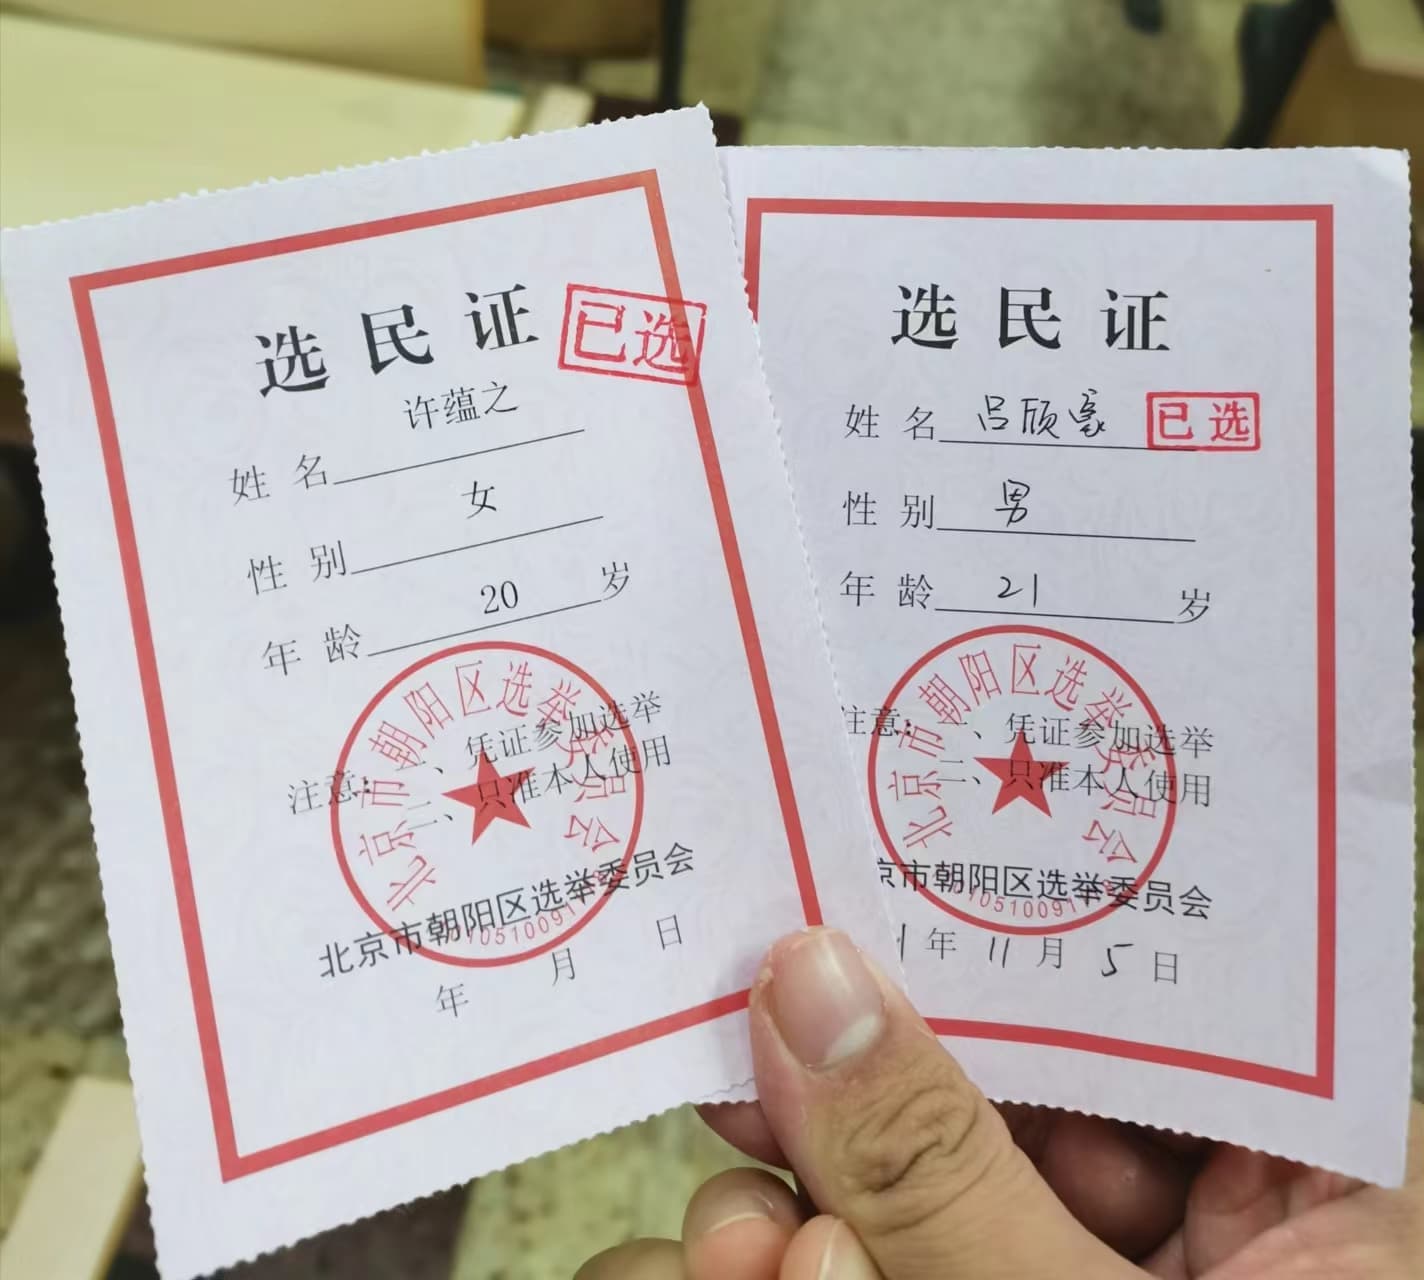 选民证
已选
许蕴之
姓名
女
性别
20
年龄 岁
注意：一、凭证参加选举
二、只准本人使用
北京市朝阳区选举委员会
北京市朝阳区选举委员会
年 月 日
选民证
姓名 吕颀豪 已选
性别 男
年龄 21 岁
注意：一、凭证参加选举
二、只准本人使用
北京市朝阳区选举委员会
京市朝阳区选举委员会
1年11月5日